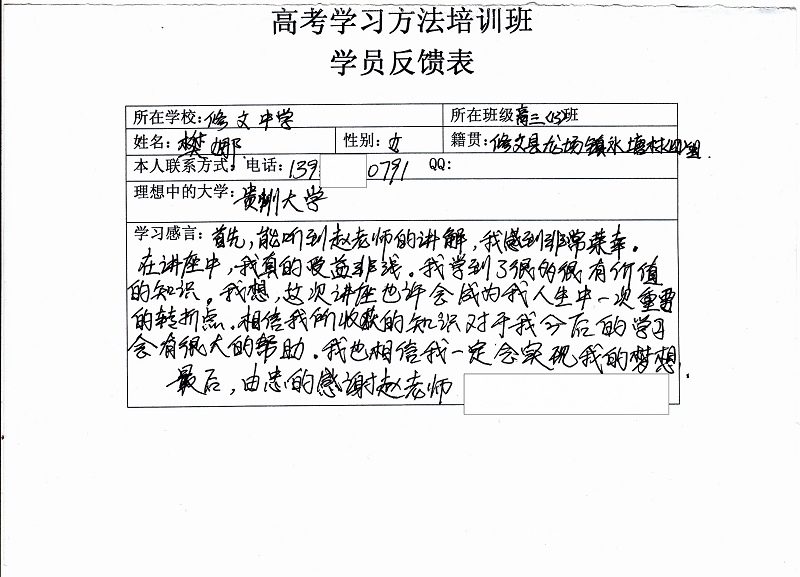 高考学习方法培训班
学员反馈表
所在学校:修文中学 所在班级高三(15)班
姓名:樊娜 性别:女 籍贯:修文县龙场镇永塘村四组
本人联系方式:电话:139 0791 QQ:
理想中的大学:贵州大学
学习感言:首先,能听到赵老师的讲解,我感到非常荣幸。
在讲座中,我真的受益非浅。我学到了很多很有价值
的知识。我想,这次讲座也许会成为我人生中一次重要
的转折点.相信我所收获的知识对于我今后的学习
会有很大的帮助.我也相信我一定会实现我的梦想.
最后,由忠的感谢赵老师